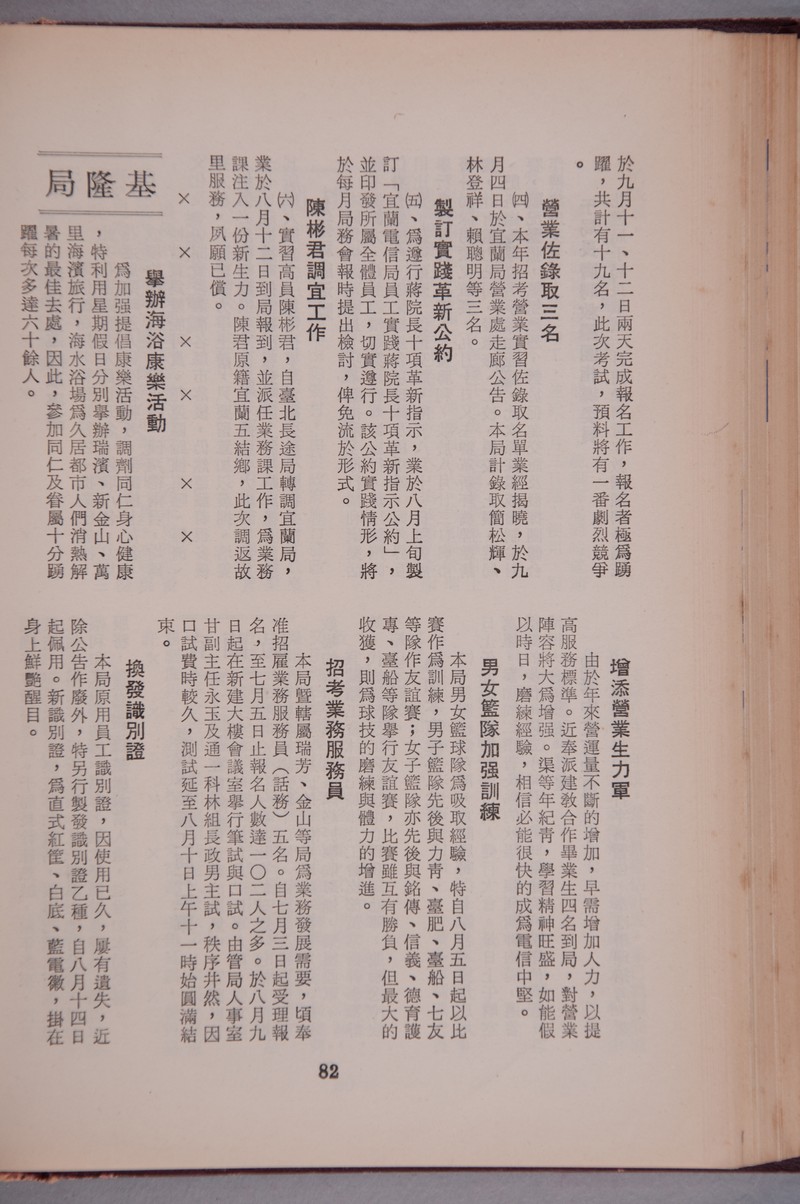 於九月十一、十二日兩天完成報名工作，報名者極爲踴
躍，共計有十九名，此次考試，預料將有一番劇烈競爭
。
營業佐錄取三名
㈣、本年招考營業實習佐錄取名單業經揭曉，於九
月四日於宜蘭局營業處走廊公告。本局計錄取簡松輝、
林登祥、賴聰明等三名。
製訂實踐革新公約
㈤、爲遵行蔣院長十項革新指示，業於八月上旬製
訂「宜蘭電信局員工實踐蔣院長十項革新指示公約」，
並印發所屬全體員工，切實遵行。該公約實踐情形，將
於每月局務會報時提出檢討，俾免流於形式。
陳彬君調宜工作
㈥、實習高員陳彬君，自臺北長途局轉調宜蘭局，
業於八月十二日到局報到，並派任業務課工作，爲業務
課注入一份新生力。陳君原籍宜蘭五結鄉，此次調返故
里服務，夙願已償。
× × × × × ×
基隆局
舉辦海浴康樂活動
爲加强提倡康樂活動，調劑同仁身心健康
，特利用星期假日分別舉辦瑞濱、新金山、萬
里海濱旅行，海水浴場爲久居都市人們消熱解
暑的最佳去處，因此，參加同仁及眷屬十分踴
躍每次多達六十餘人。
增添營業生力軍
由於年來營運量不斷的增加，早需增加人力，以提
高服務標準。近奉派建教合作畢業生四名到局，對營業
陣容將大爲增强。渠等年紀青，學習精神旺盛，如能假
以時日，磨練經驗，相信必能很快的成爲電信中堅。
男女籃隊加强訓練
本局男女籃球隊爲吸取經驗，特自八月五日起以比
賽作爲訓練，男子籃隊先後與力靑、臺肥、臺船、七友
等隊作友誼賽；女子籃隊亦先後與銘傳、信義、德育護
專、臺船等隊擧行友誼賽，比賽雖互有勝負，但最大的
收獲，則爲球技的磨練與體力的增進。
招考業務服務員
本局暨轄屬瑞芳、金山等局爲業務發展需要，頃奉
准招雇業務服務員（話務）五名。自七月三日起受理報
名，至七月五日止報名人數達一〇二人之多。於八月九
日起在新建大樓會議室舉行筆試與口試。由管局人事室
甘副主任永玉及通一科林組長政男主試，秩序井然，因
口試費時較久，測試延至八月十日上午十一時始圓滿結
束。
換發識別證
本局原用員工識別證，因使用已久，屢有遺失，近
除公告作廢外，特另行製發識別證乙種，自八月十四日
起佩用。新識別證，爲直式紅筐、白底、藍電徽，掛在
身上鮮艷醒目。
82